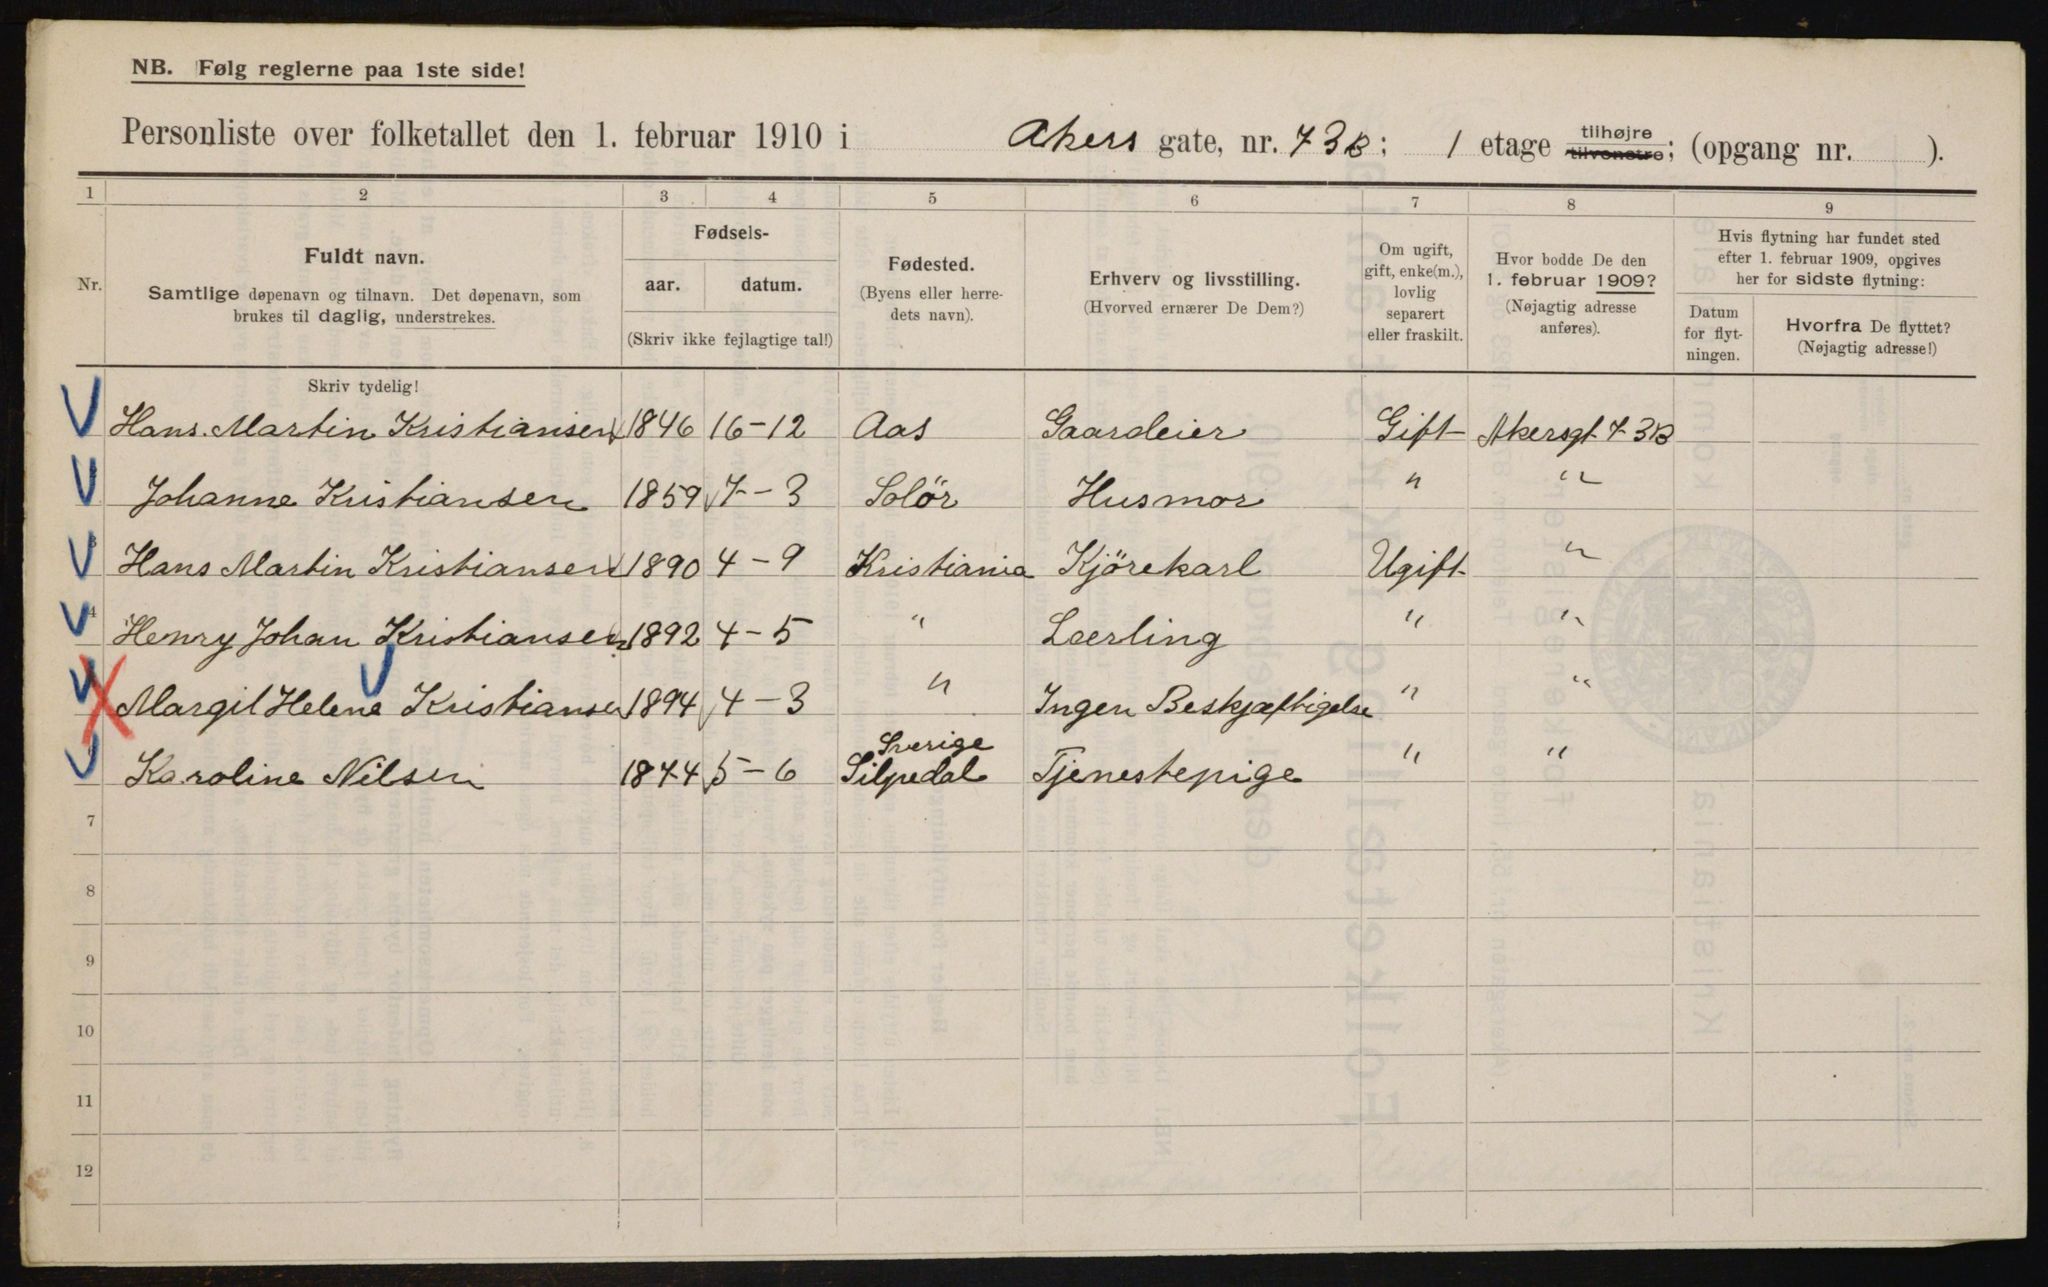 NB. Følg reglerne paa 1ste side!
Personliste over folketallet den 1. februar 1910 i Akers gate, nr. 73B; 1 etage tilhøjre tilvenstre; (opgang nr. ).
1 2 3 4 5 6 7 8 9
Nr.
Fuldt navn.
Samtlige døpenavn og tilnavn. Det døpenavn, som
brukes til daglig, understrekes.
Fødsels-
aar. datum.
(Skriv ikke fejlagtige tal!)
Fødested.
(Byens eller herre-
dets navn).
Erhverv og livsstilling.
(Hvorved ernærer De Dem?)
Om ugift,
gift, enke(m.),
lovlig
separert
eller fraskilt.
Hvor bodde De den
1. februar 1909?
(Nøjagtig adresse
anføres).
Hvis flytning har fundet sted
efter 1. februar 1909, opgives
her for sidste flytning:
Datum
for flyt-
ningen.
Hvorfra De flyttet?
(Nøjagtig adresse!)
Skriv tydelig!
Hans Martin Kristiansen 1846 16-12 Aas Gaardeier Gift Akersgt 73B
Johanne Kristiansen 1859 7-3 Solör Husmor " "
Hans Martin Kristiansen 1890 4-9 Kristiania Kjörekarl Ugift "
4 Henry Johan Kristiansen 1892 4-5 " Lærling " "
Margit Helene Kristiansen 1894 4-3 " Ingen Beskjæftigelse " "
Karoline Nilsen 1844 5-6 Sverige Silpedal Tjenestepige " "
7
8
9
10
11
12